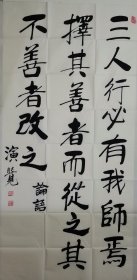 三人行必有我師焉
擇其善者而從之其
不善者改之
論語
演覺